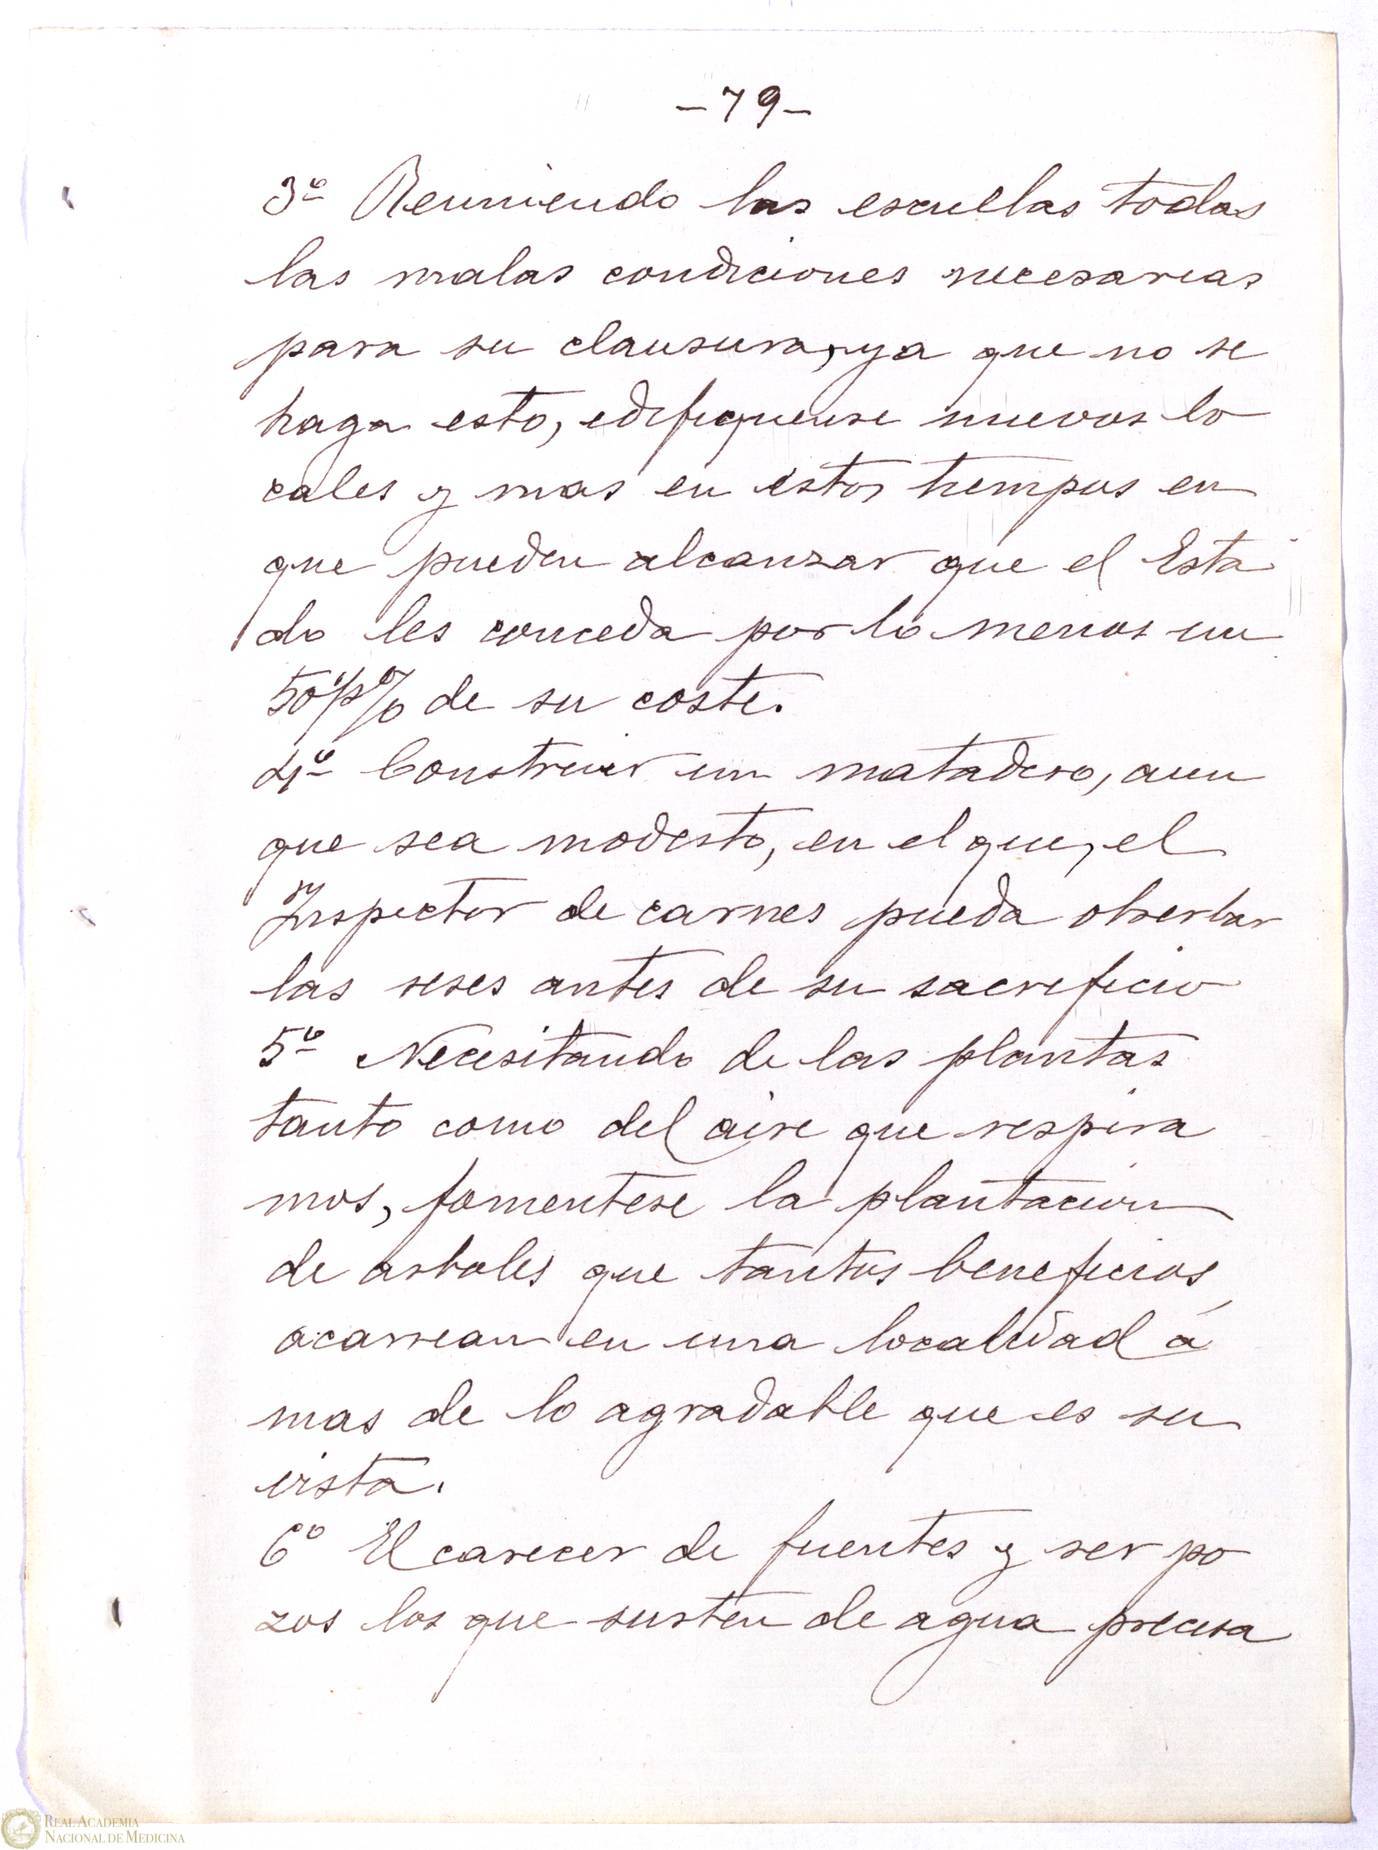 -79-
3º Reuniendo las escuelas todas
las malas condiciones necesarias
para su clausura, ya que no se
haga esto, edifiquense nuevos lo
cales y mas en estos tiempos en
que pueden alcanzar que el Esta
do les conceda por lo menos un
50 p% de su coste.
4º Construir un matadero, aun
que sea modesto, en el que, el
Inspector de carnes pueda obserbar
las reses antes de su sacrificio
5º Necesitando de las plantas
tanto como del aire que respira
mos, fomentese la plantacion
de arboles que tantos beneficios
acarrean en una localidad á
mas de lo agradable que es su
vista.
6º El carecer de fuentes y ser po
zos los que surten de agua precisa
REAL ACADEMIA
NACIONAL DE MEDICINA